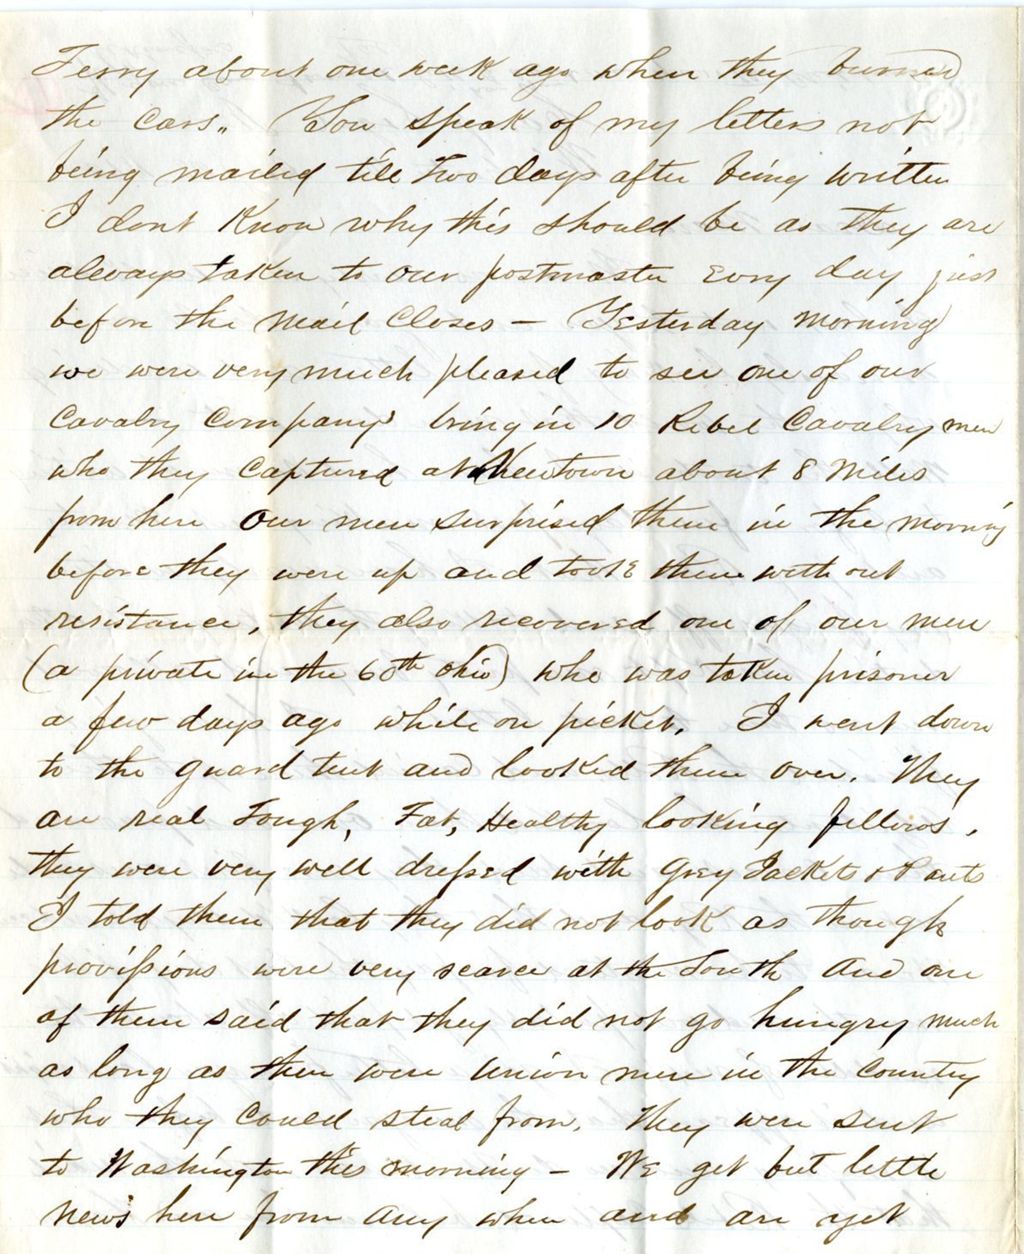 Ferry about one week ago when they burned
the cars,, You speak of my letters not
being mailed till two days after being written
I dont Know why this should be as they are
always taken to our postmaster Evry day just
before the Mail Closes – Yesterday Morning
we were very much pleased to see one of our
Cavalry Company's bring in 10 Rebel Cavalry men
who they Captured at Newtown about 8 Miles
from here Our men Surprised them in the morning
before they were up and took them without
resistance, they also recovered one of our men
(a private in the 60th Ohio) who was taken prisoner
a few days ago while on picket. I went down
to the guard tent and looked them over. They
are real Tough, Fat, Healthy looking fellows,
they were very well dressed with Grey Jackets & Pants
I told them that they did not look as though
provissions were very scarce at the South And one
of them said that they did not go hungry much
as long as there were Union men in the Country
who they Could steal from. They were sent
to Washington this morning – We get but little
News here from Any where and are yet